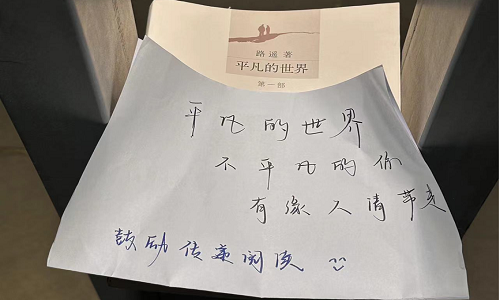 路遥 著
平凡的世界
第一部
平凡的世界
不平凡的你
有缘人请带走
鼓励传递阅读